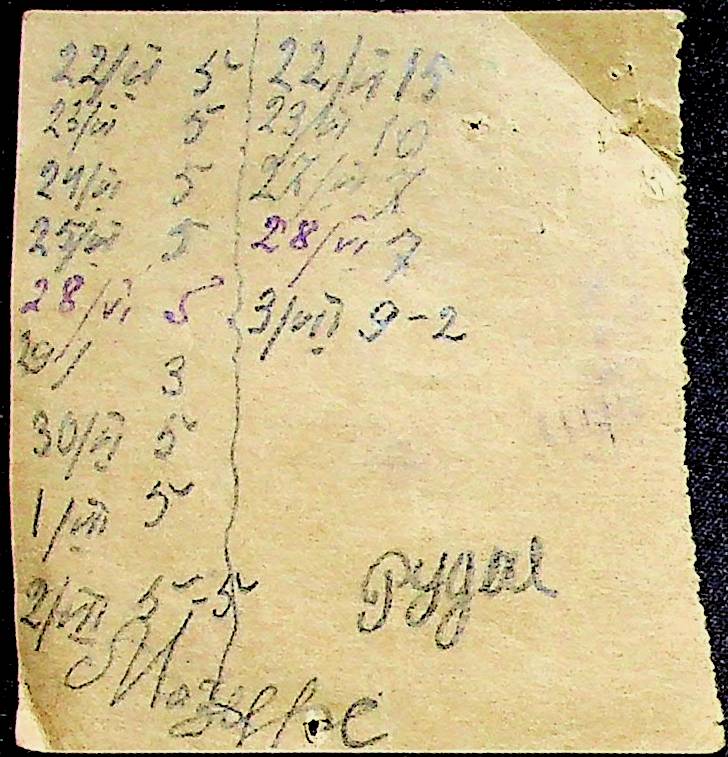 22/VI 5 22/VI 15
23/VI 5 23/VI 10
24/VI 5 27/VI 7
25/VI 5 28/VI 7
28/VI 5 3/VII 9-2
3
30/VI 5
1/VII 5
2/VII 5-5
Рудое